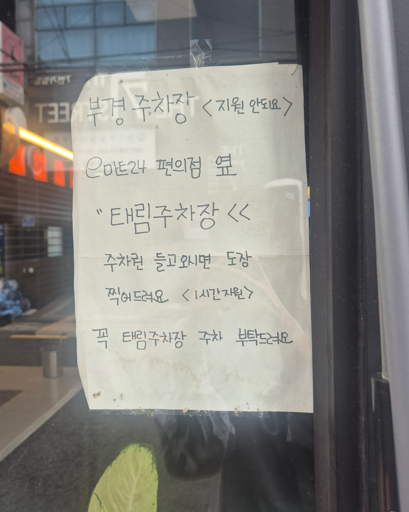 부경 주차장 <지원 안되요>
e마트24 편의점 옆
"태림주차장 <<
주차권 들고오시면 도장
찍어드려요 <1시간지원>
꼭 태림주차장 주차 부탁드려요
STREET